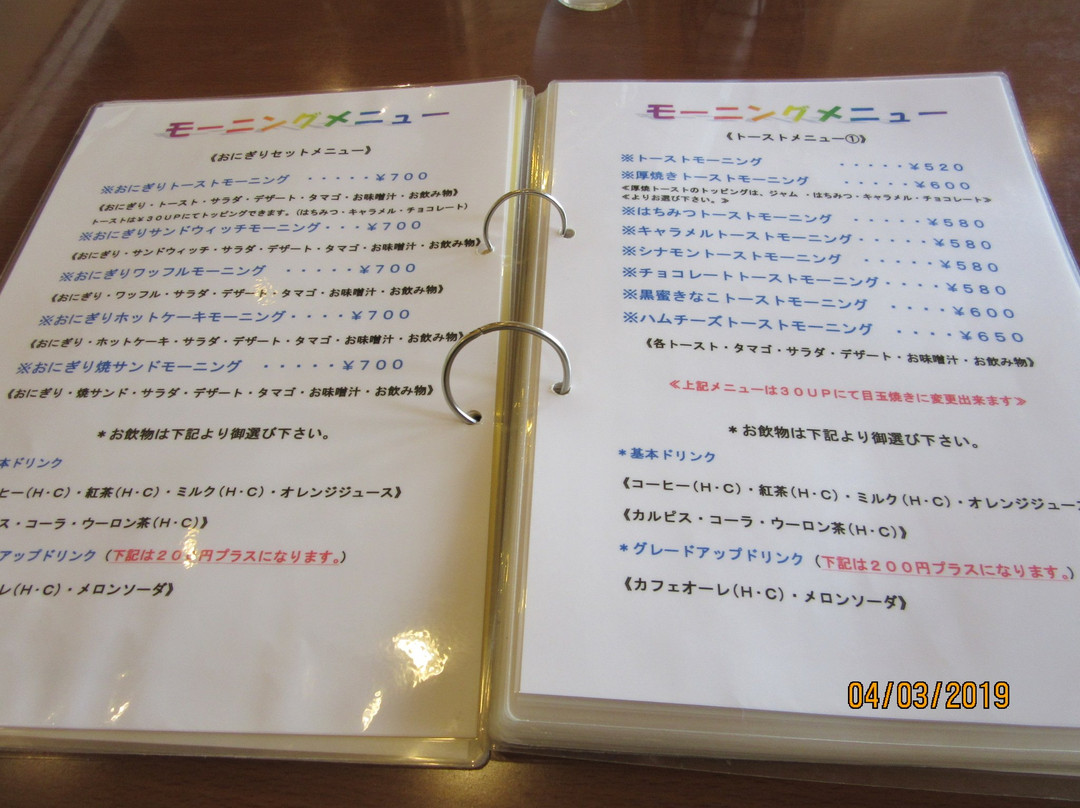 モーニングメニュー
《おにぎりセットメニュー》
※おにぎりトーストモーニング ・・・・・¥700
《おにぎり・トースト・サラダ・デザート・タマゴ・お味噌汁・お飲み物》
トーストは¥30UPにてトッピングできます。(はちみつ・キャラメル・チョコレート)
※おにぎりサンドウィッチモーニング・・・¥700
《おにぎり・サンドウィッチ・サラダ・デザート・タマゴ・お味噌汁・お飲み物》
※おにぎりワッフルモーニング ・・・・・¥700
《おにぎり・ワッフル・サラダ・デザート・タマゴ・お味噌汁・お飲み物》
※おにぎりホットケーキモーニング・・・・¥700
《おにぎり・ホットケーキ・サラダ・デザート・タマゴ・お味噌汁・お飲み物》
※おにぎり焼サンドモーニング ・・・・・¥700
《おにぎり・焼サンド・サラダ・デザート・タマゴ・お味噌汁・お飲み物》
*お飲物は下記より御選び下さい。
本ドリンク
ヒー(H・C)・紅茶(H・C)・ミルク(H・C)・オレンジジュース》
ス・コーラ・ウーロン茶(H・C)》
アップドリンク (下記は200円プラスになります。)
レ(H・C)・メロンソーダ》
モーニングメニュー
《トーストメニュー①》
※トーストモーニング ・・・・・¥520
※厚焼きトーストモーニング ・・・・・¥600
≪厚焼トーストのトッピングは、ジャム ・はちみつ・キャラメル・チョコレート≫
≪よりお選び下さい。≫
※はちみつトーストモーニング ・・・・・¥580
※キャラメルトーストモーニング・・・・・¥580
※シナモントーストモーニング ・・・・・¥580
※チョコレートトーストモーニング・・・・¥580
※黒蜜きなこトーストモーニング ・・・・¥600
※ハムチーズトーストモーニング ・・・・¥650
《各トースト・タマゴ・サラダ・デザート・お味噌汁・お飲み物》
≪上記メニューは30UPにて目玉焼きに変更出来ます≫
*お飲物は下記より御選び下さい。
*基本ドリンク
《コーヒー(H・C)・紅茶(H・C)・ミルク(H・C)・オレンジジュース
《カルピス・コーラ・ウーロン茶(H・C)》
*グレードアップドリンク (下記は200円プラスになります。)
《カフェオーレ(H・C)・メロンソーダ》
04/03/2019